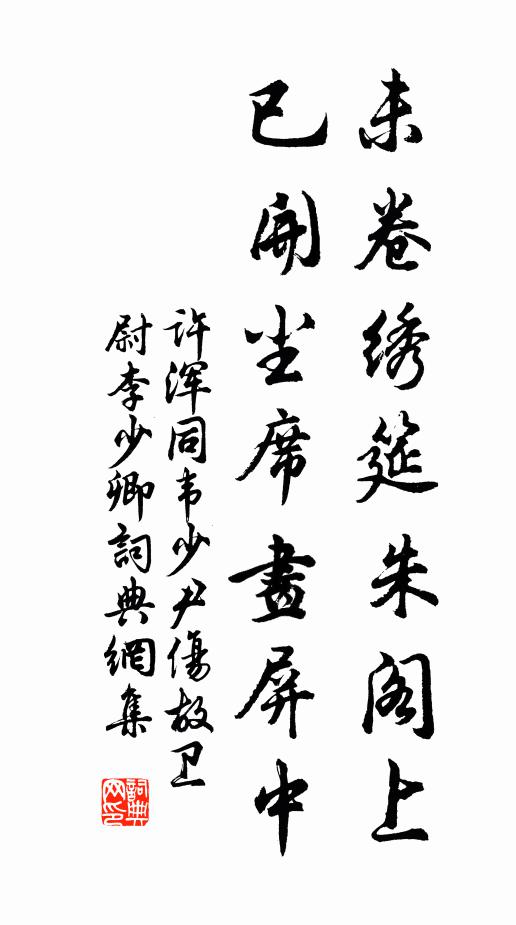 未卷绣筵朱阁上
已開尘席畫屏中
许浑同韦少尹傷故卫
尉李少卿詞典網集
詞典网印